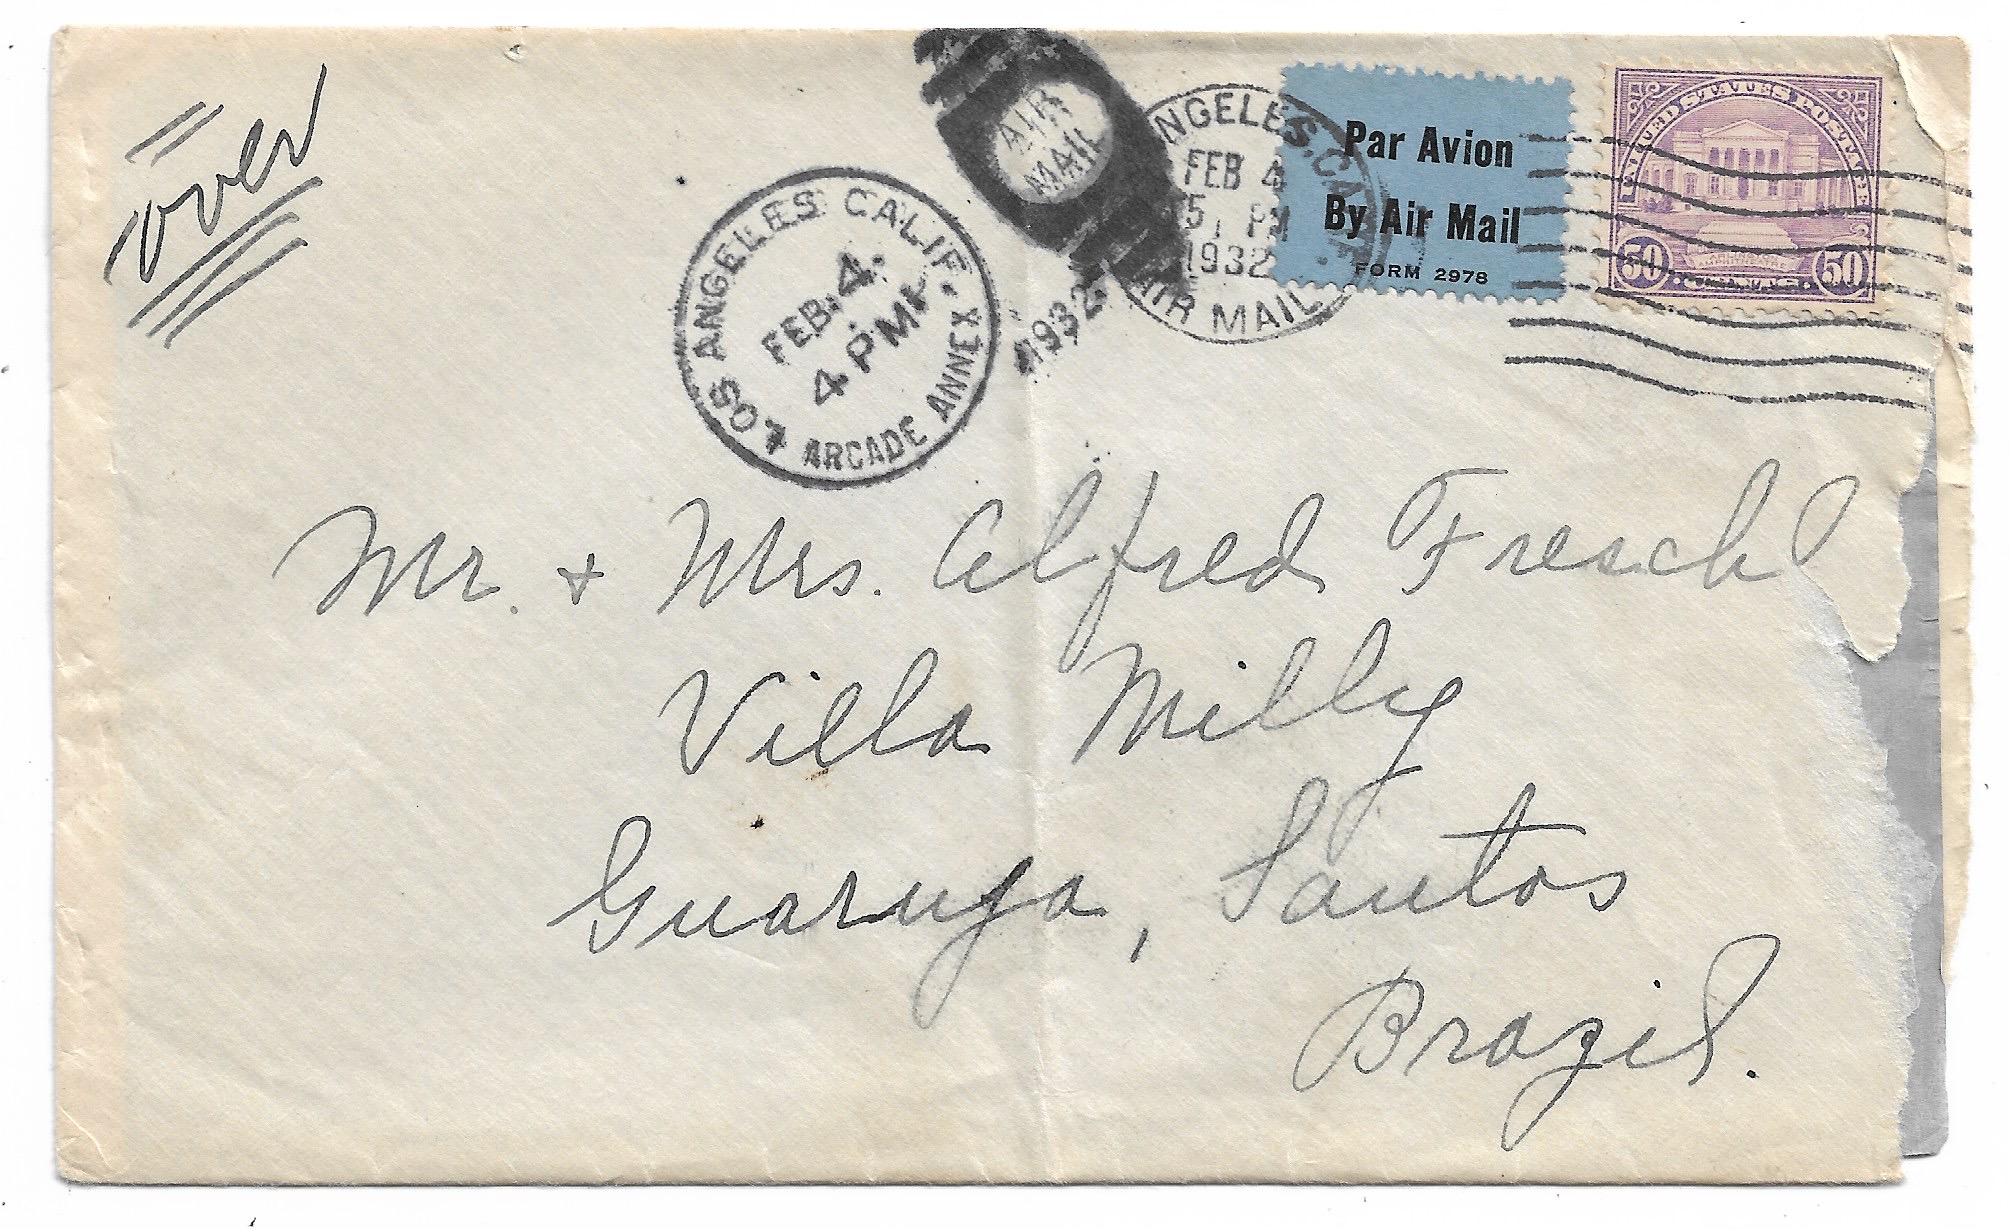 Over
LOS ANGELES CALIF.
FEB. 4.
4 PM
1932.
ARCADE ANNEX
AIR
MAIL
ANGELES. CALIF.
FEB 4
5 PM
1932
AIR MAIL
Par Avion
By Air Mail
FORM 2978
UNITED STATES POSTAGE
50 50
Mr. + Mrs. Alfred Fresch
Villa Milly
Guaruja, Santos
Brazil.